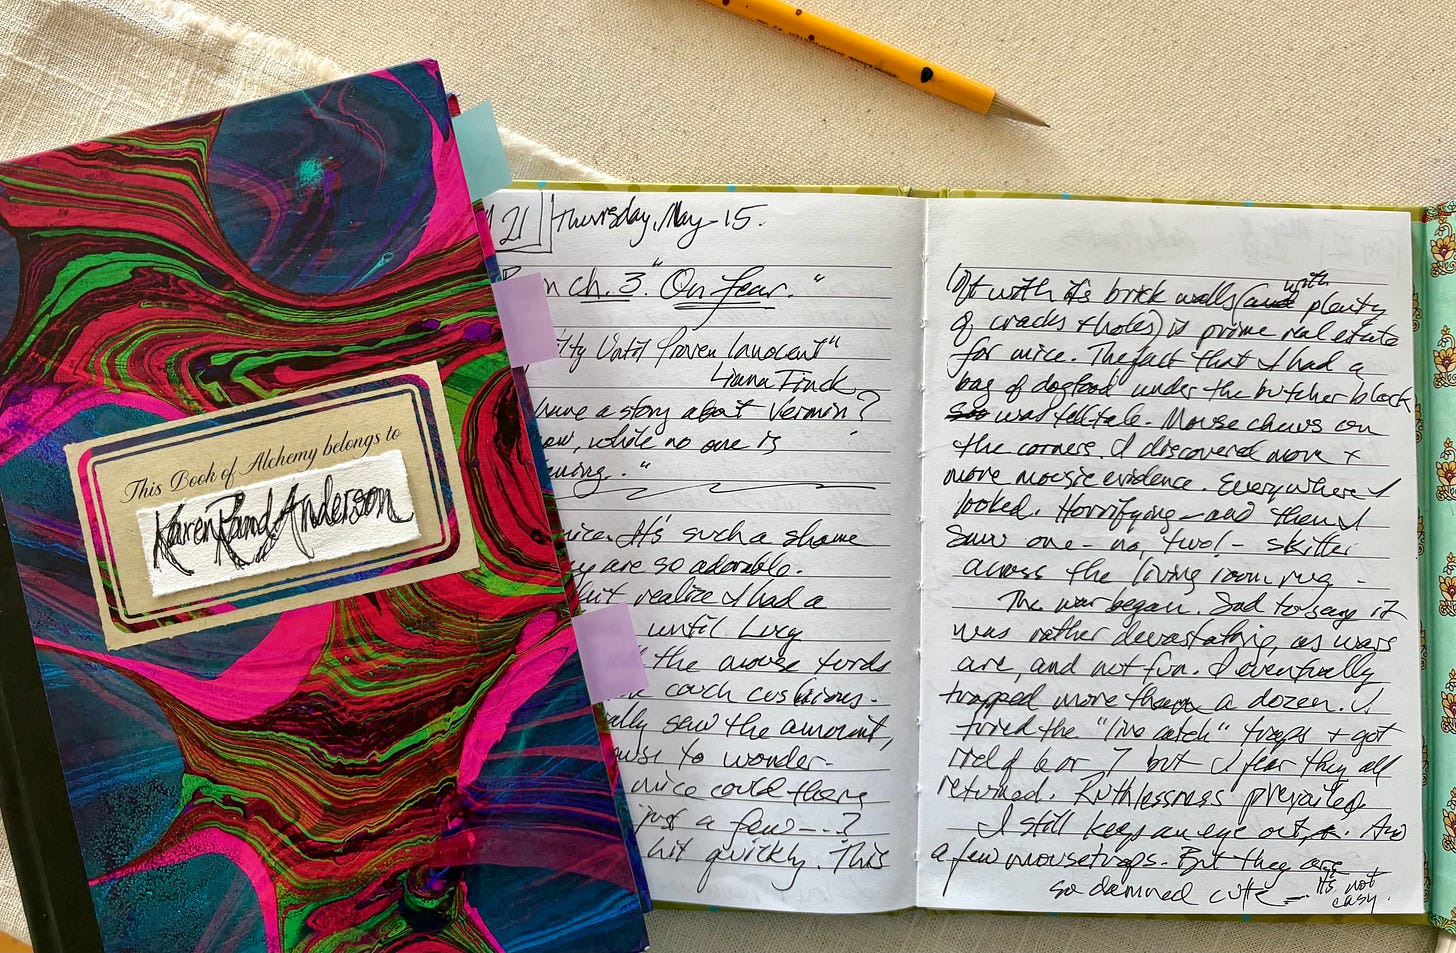 This Book of Alchemy belongs to
Karen Rand Anderson
21 Thursday, May 15.
ch. 3. "On Fear."
Until Proven Innocent"
Liana Finck
have a story about Vermin?
while no one is
It's such a shame
are so adorable.
realize I had a
until Lucy
the mouse turds
couch cushions.
saw the amount,
to wonder-
mice could there
just a few --- ?
hit quickly. This
loft with its brick walls (and with plenty
of cracks + holes) is prime real estate
for mice. The fact that I had a
bag of dogfood under the butcher block
was telltale. Mouse chews on
the corners. I discovered more +
more mousie evidence. Everywhere I
looked. Horrifying - and then I
saw one - no, two! - skitter
across the living room rug.
The war began. Sad to say it
was rather devastating, as wars
are, and not fun. I eventually
trapped more than a dozen. I
tried the "live catch" traps + got
rid of 6 or 7 but I fear they all
returned. Ruthlessness prevailed.
I still keep an eye out. And
a few mousetraps. But they are
so damned cute - It's not
easy.